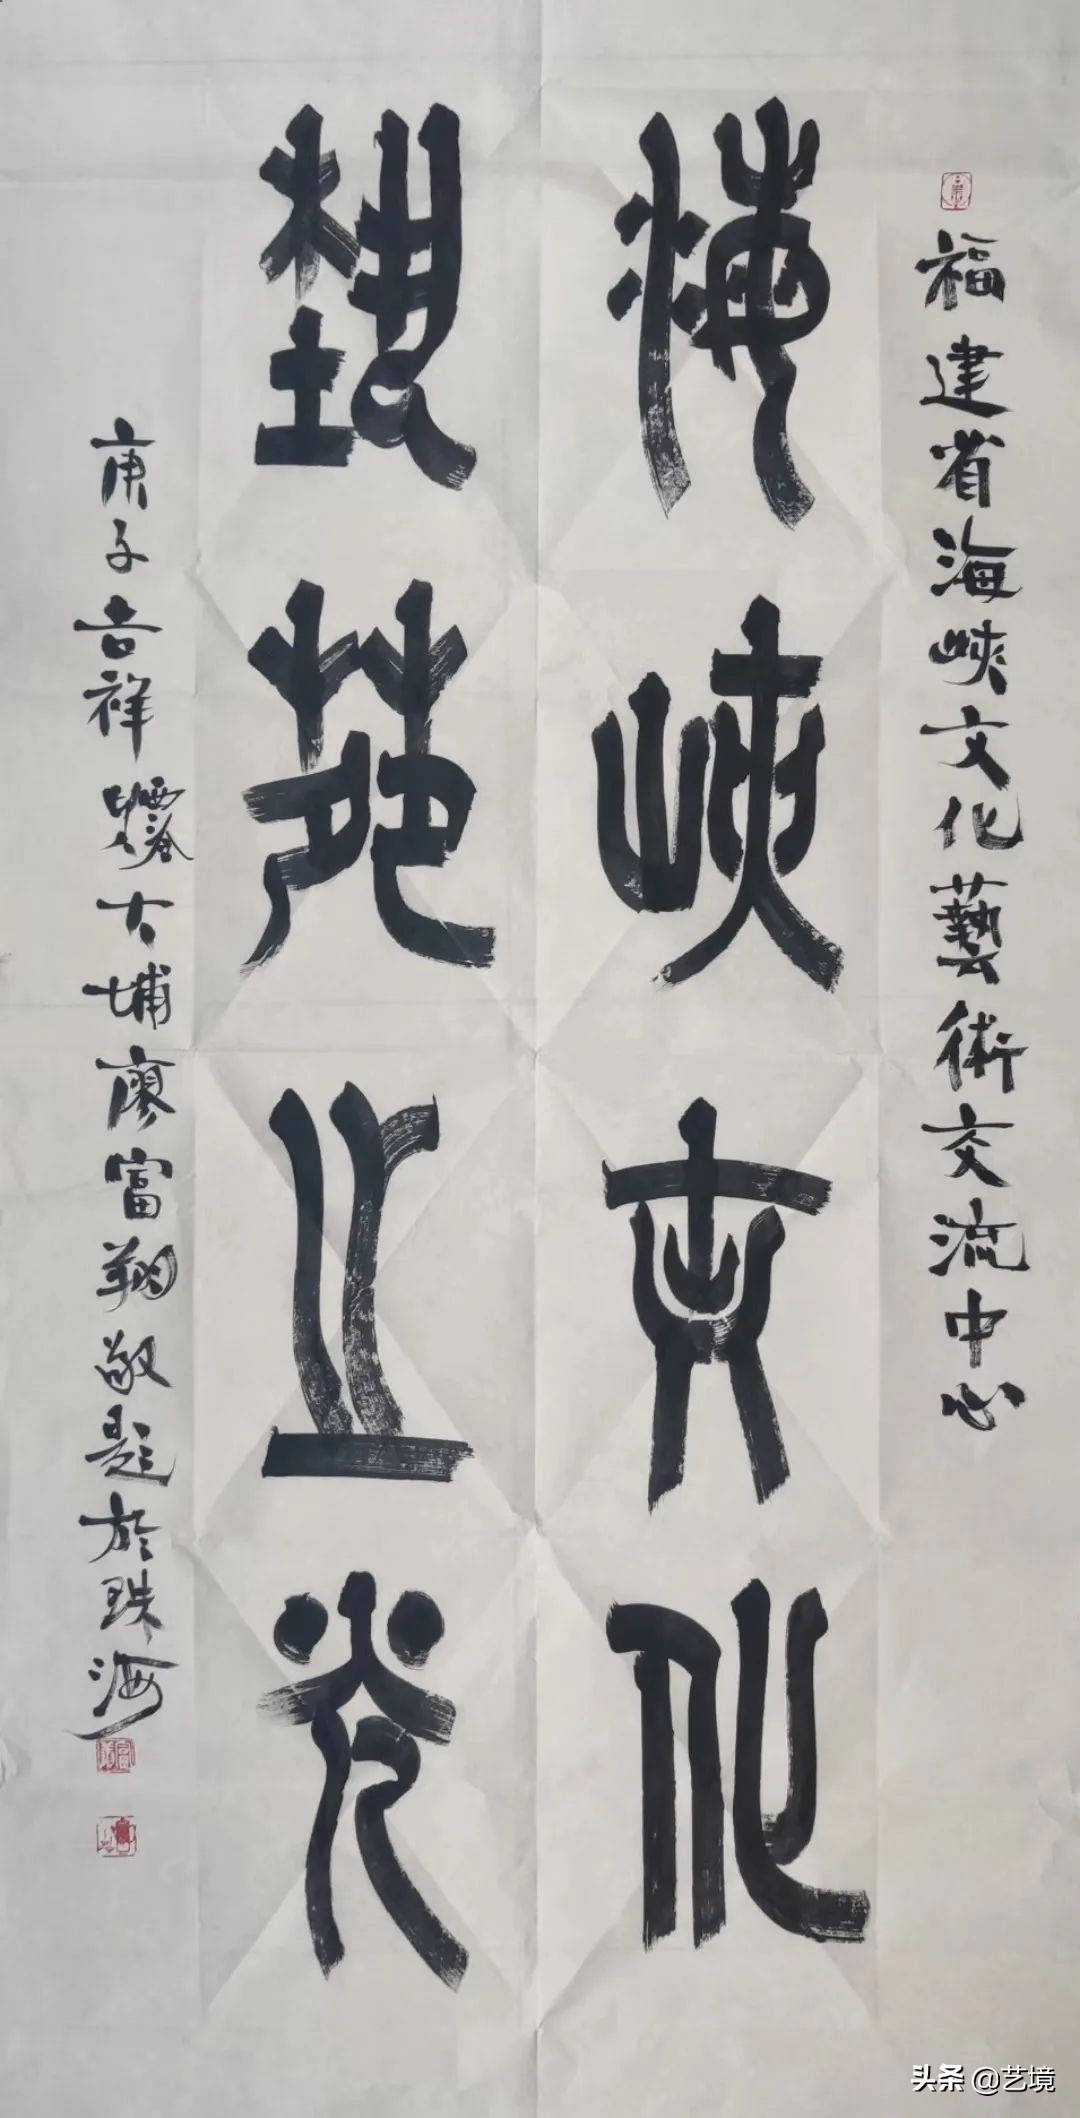 福建省海峡文化藝術交流中心
海峡文化
埶苑之光
庚子吉祥 大埔廖富翔敬題於珠海
头条 @艺境